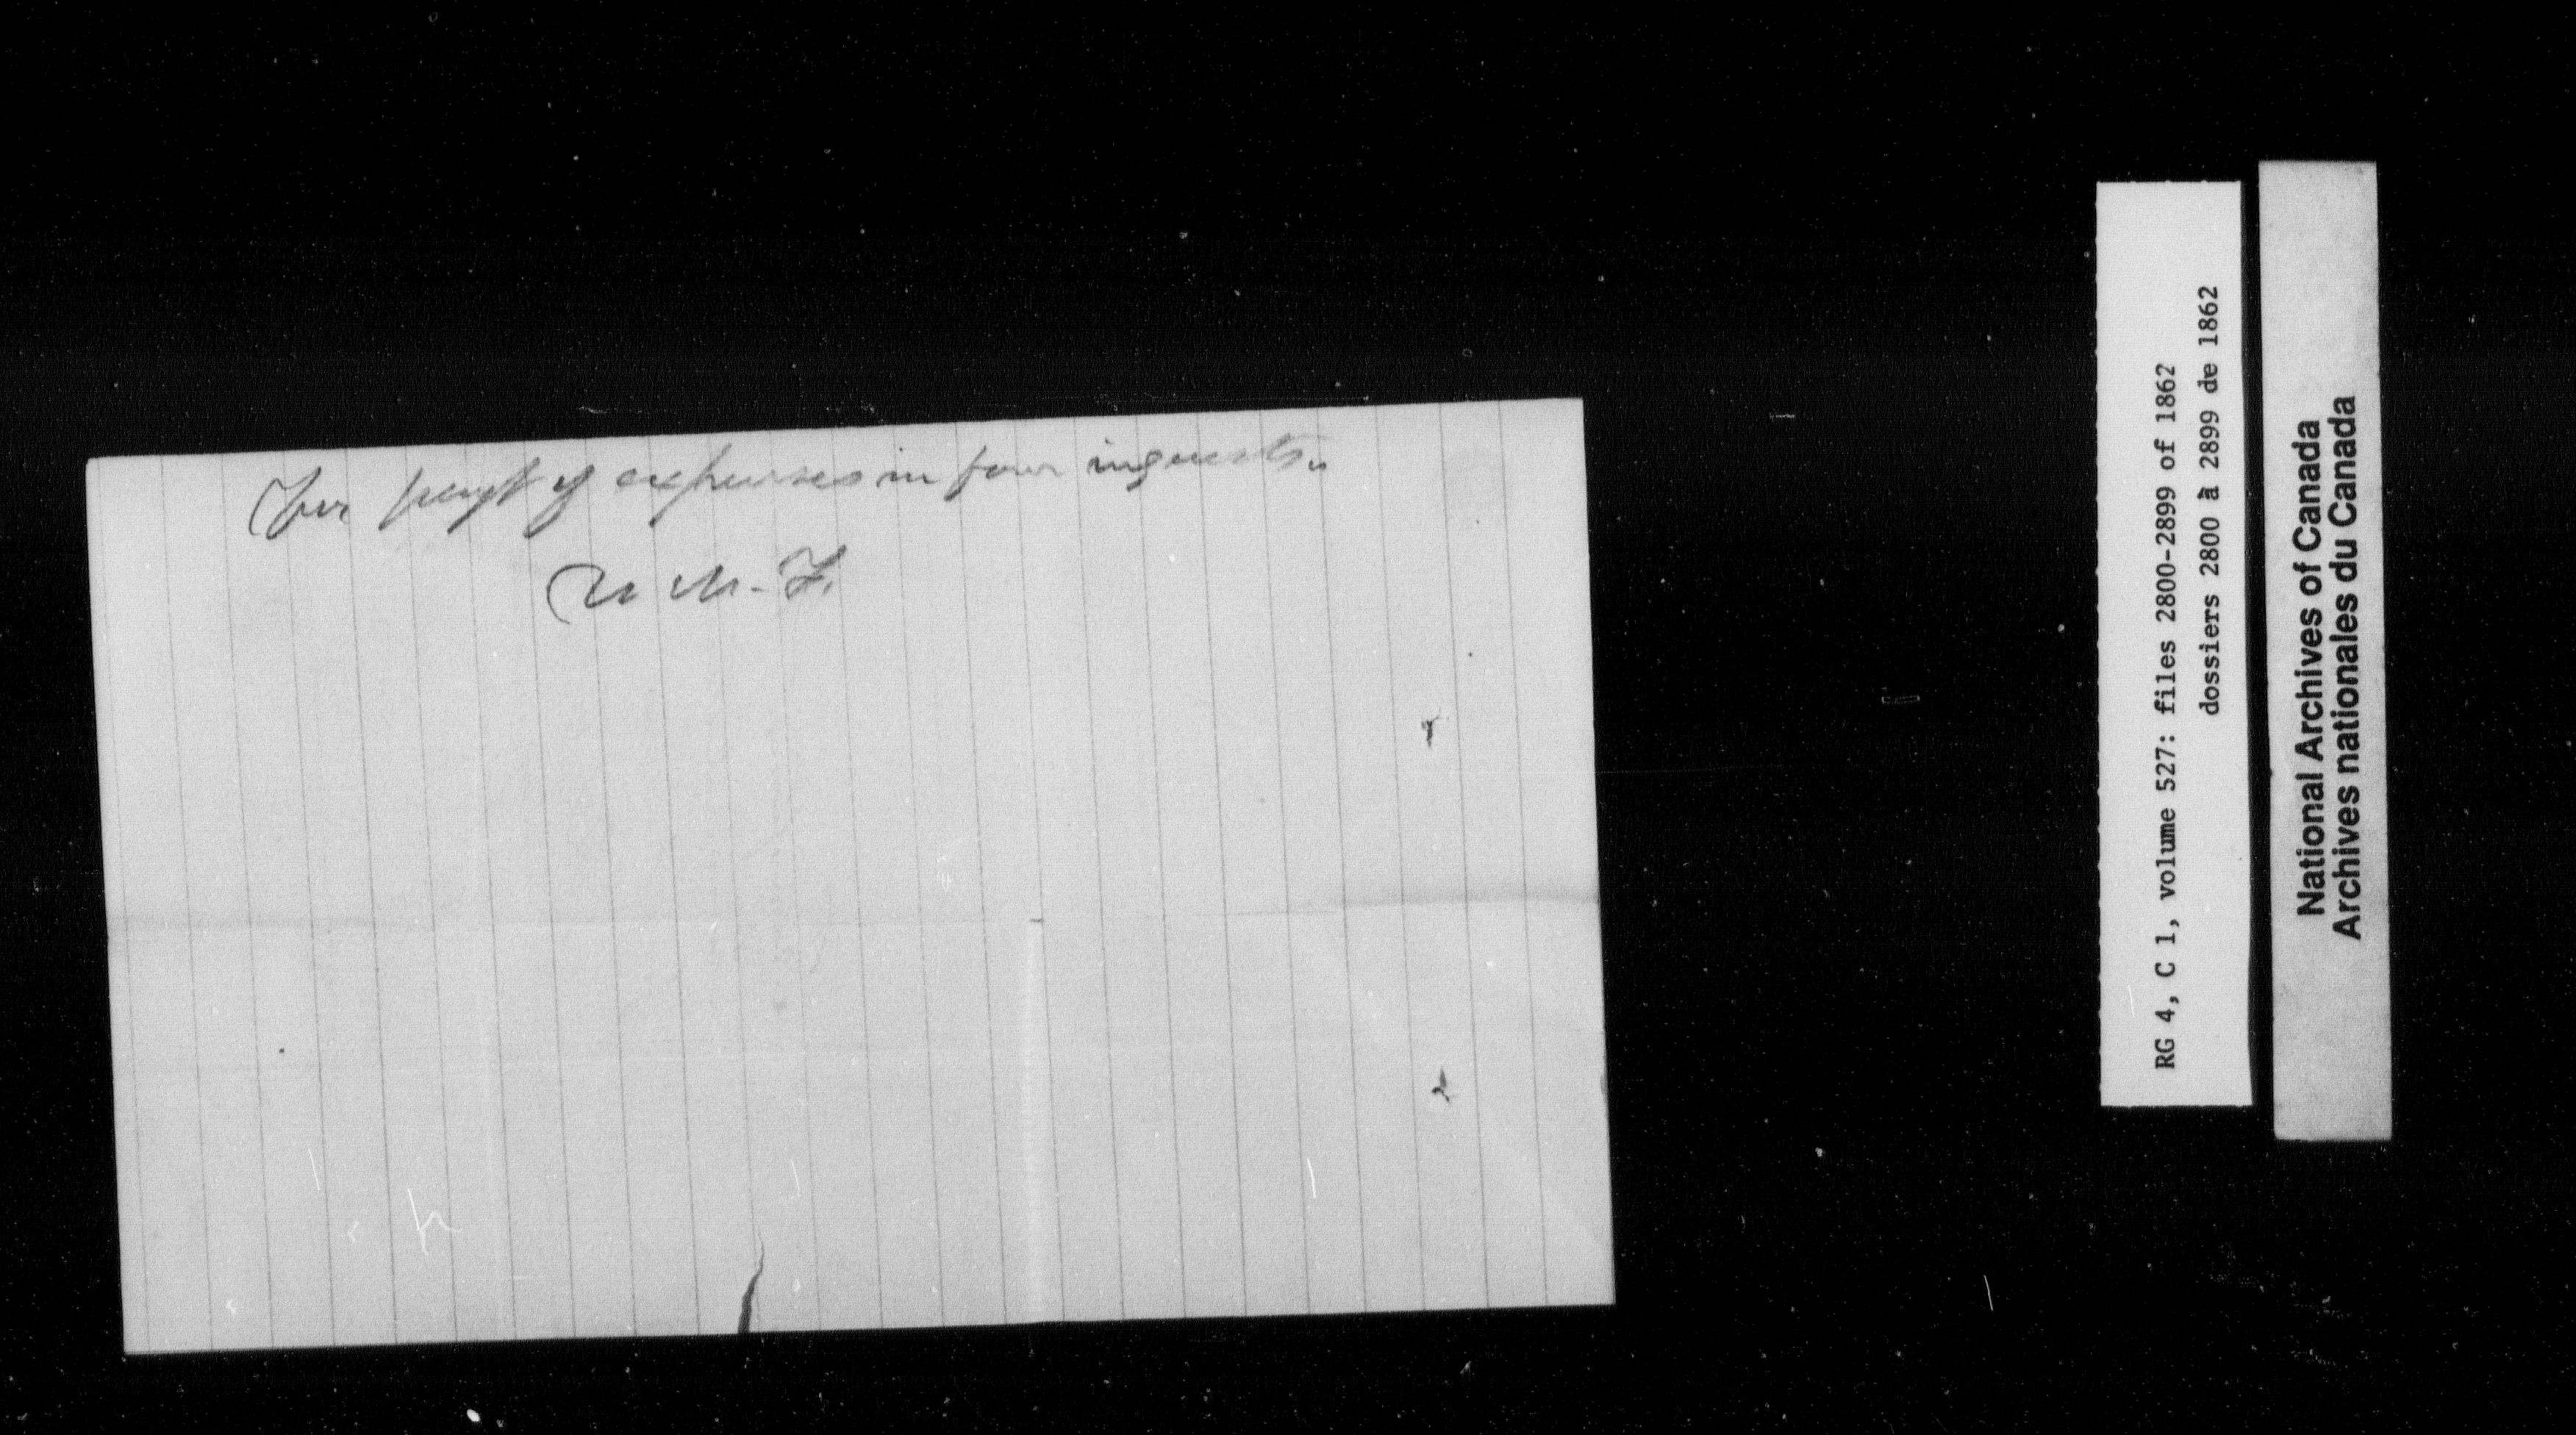 For payt of expenses in four inquests.
RG 4, C 1, volume 527: files 2800-2899 of 1862
dossiers 2800 à 2899 de 1862
National Archives of Canada
Archives nationales du Canada